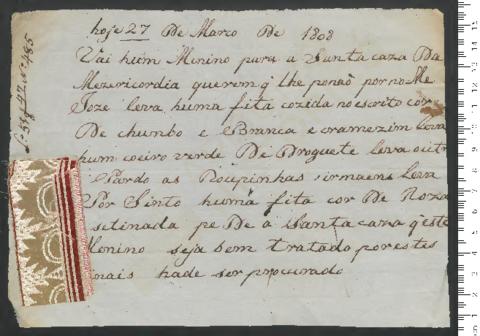 hoje 27 De Marco De 1808
Vai hum Menino para a Santa caza Da
Mezericordia querem q' lhe ponão por noMe
Joze leva huma fita cozida no escrito cor
De chumbo e Branca e cramezim leva
hum coeiro verde De Droguete leva outr
Pardo as Roupinhas irmaens leva
Por Sinto huma fita cor De Roza
setinada pe De a Santa caza q' este
Menino seja bem tratado por estes
mais hade ser procurado